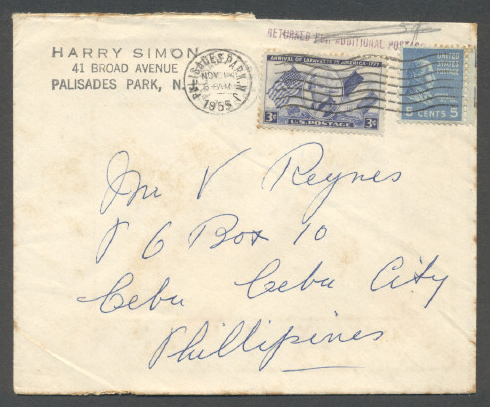 RETURNED FOR ADDITIONAL POSTAGE
HARRY SIMON
41 BROAD AVENUE
PALISADES PARK, N.J.
PALISADES PARK, N.J.
NOV
AM
1953
ARRIVAL OF LAFAYETTE IN AMERICA-1777
3¢ U.S. POSTAGE 3¢
UNITED
STATES
POSTAGE
5 CENTS 5
Mr V Reynes
P O Box 10
Cebu Cebu City
Phillipines